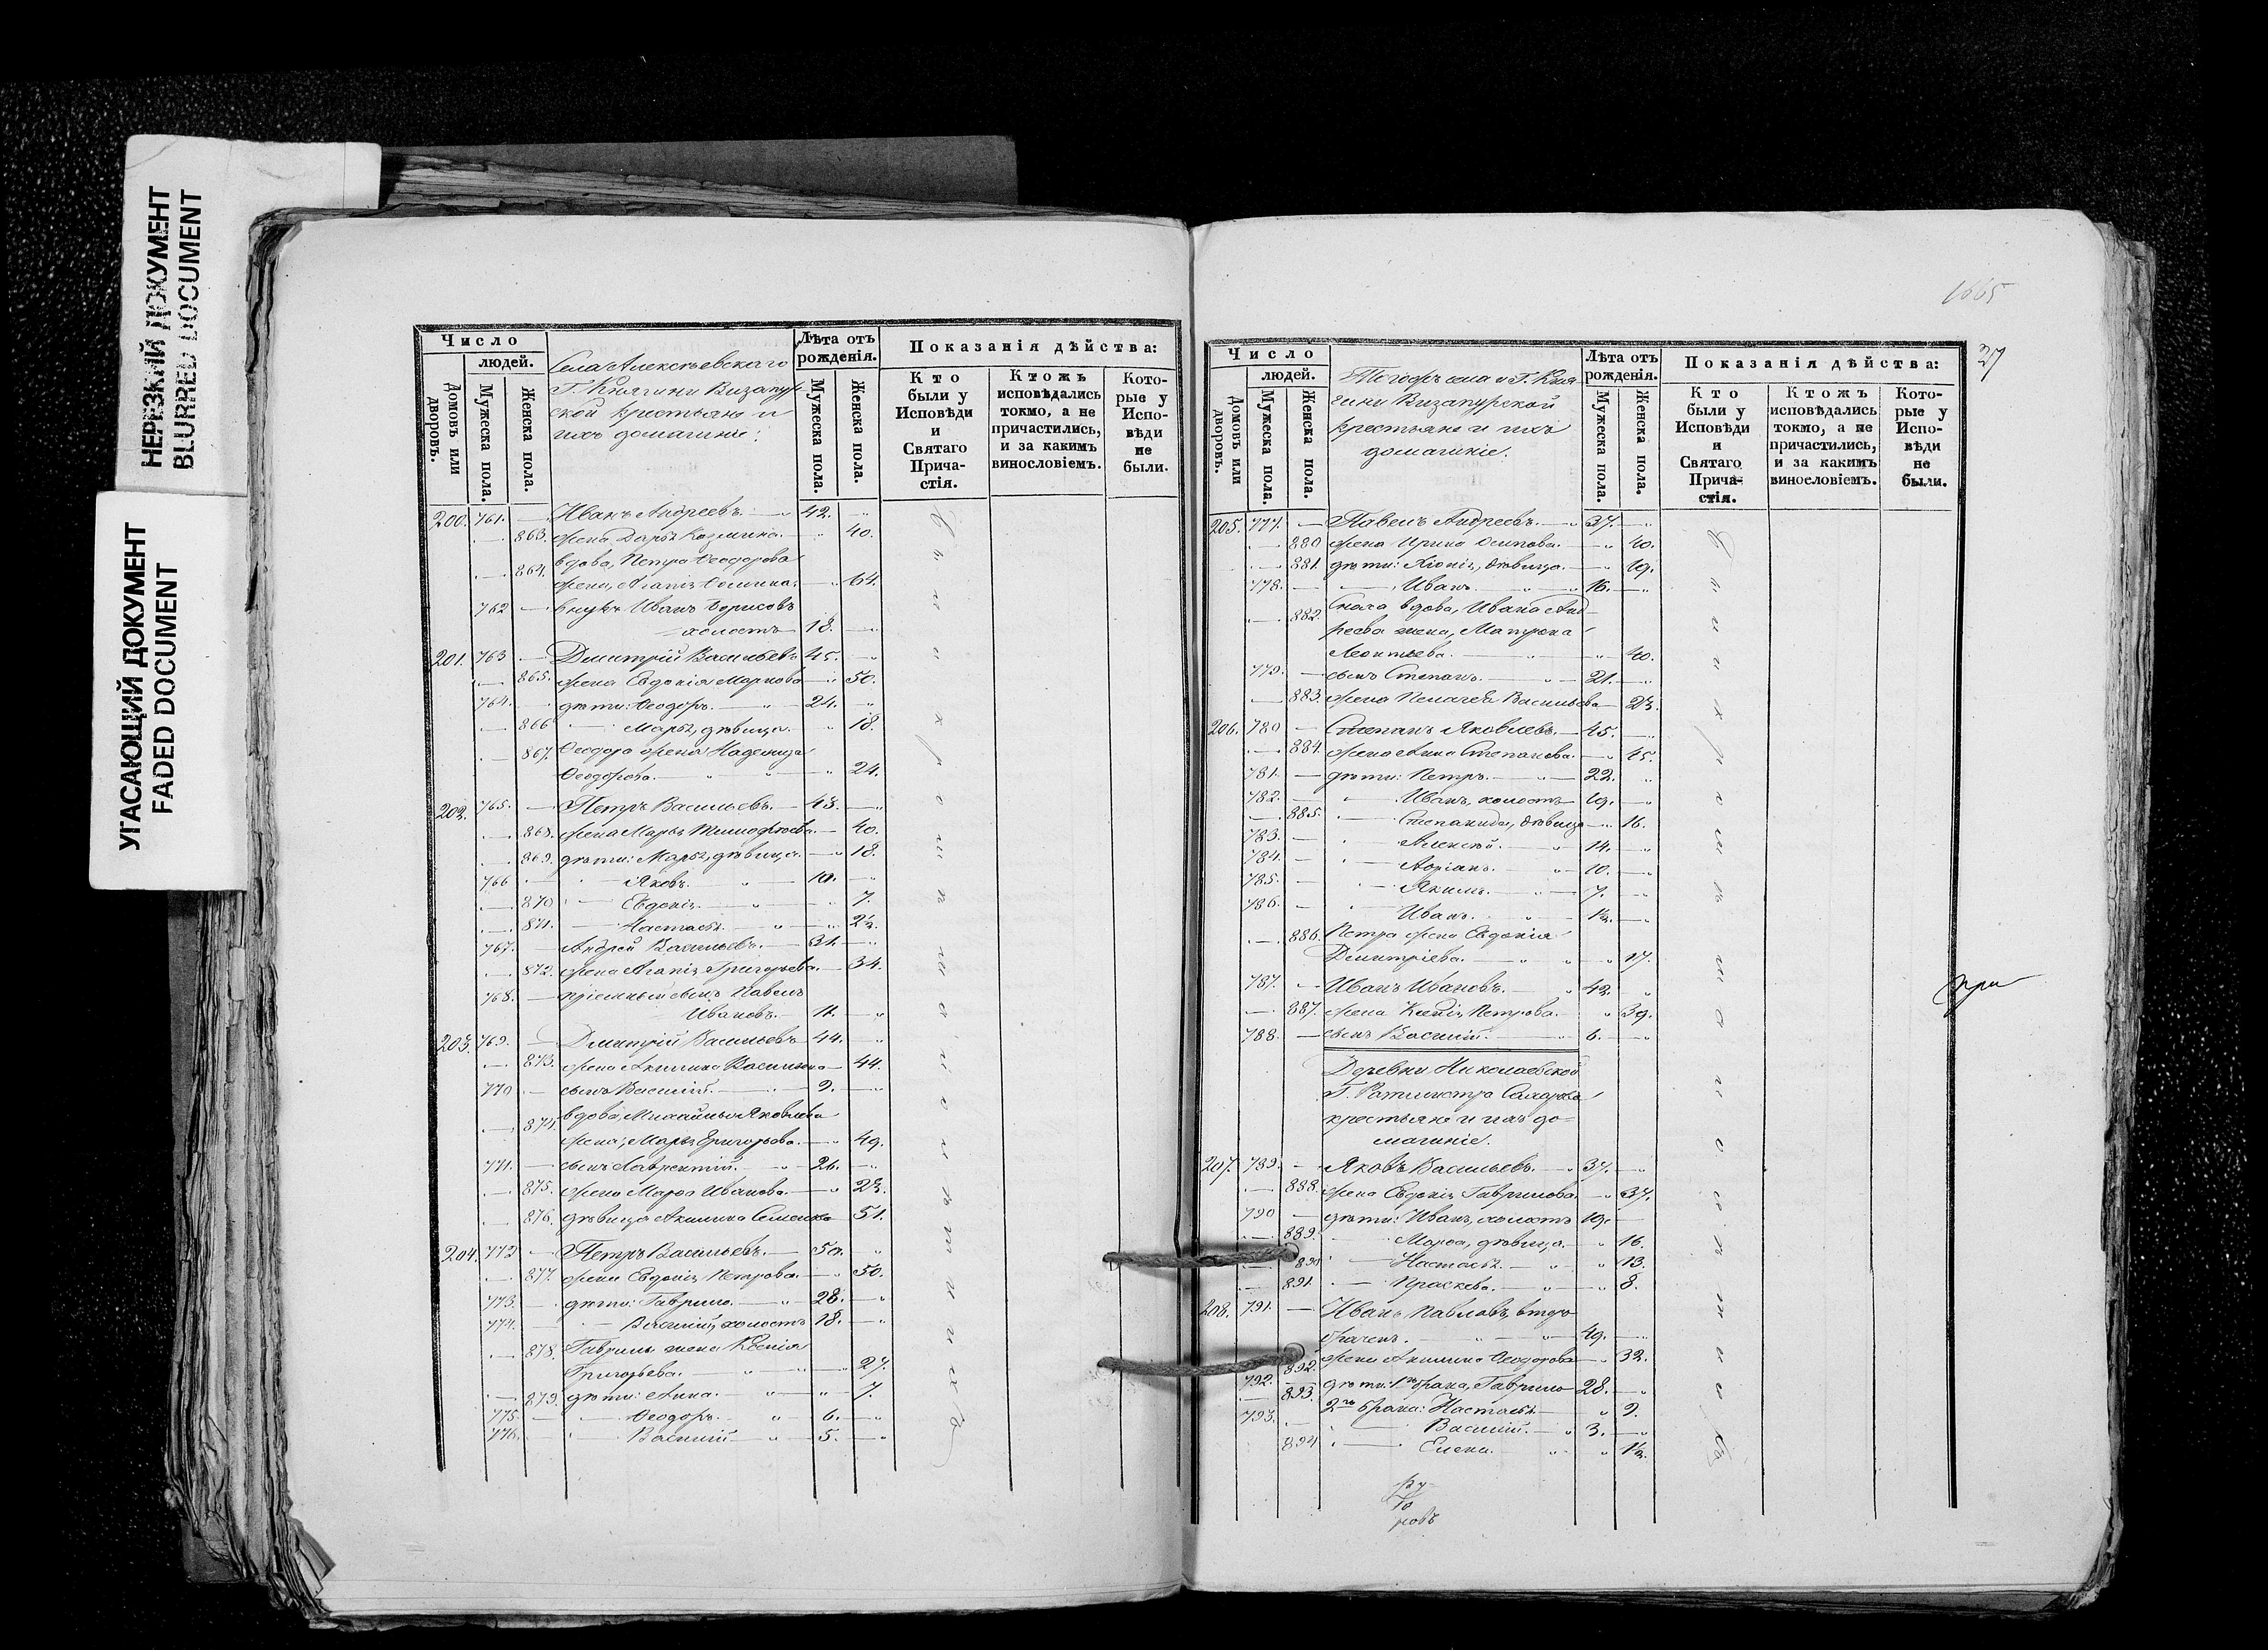 НЕРЕЗКИЙ ДОКУМЕНТ
BLURRED DOCUMENT
УГАСАЮЩИЙ ДОКУМЕНТ
FADED DOCUMENT
Число
людей.
Домовъ или дворовъ.
Мужеска пола.
Женска пола.
Села Алексѣевскаго
Г. Княгини Визапур-
ской крестьяне и
ихъ домашніе:
Лѣта отъ рожденія.
Мужеска пола.
Женска пола.
Показанія дѣйства:
Кто были у Исповѣди и Святаго Прича-стія.
Ктожъ исповѣдались токмо, а не причастились, и за какимъ винословіемъ.
Кото-рые у Испо-вѣди не были.
200. 761. — Иванъ Андреевъ. — 42.
863. жена Дарья Козмина. 40.
864. вдова, Петра Ѳеодорова
жена, Агапія 64.
762 — внукъ Иванъ Борисовъ
холостъ 18.
201. 763 — Димитрій Васильевъ 45.
865. жена Евдокія Маркова 50.
764. дѣти: Ѳеодоръ. 24.
866 Марья, дѣвица. 18.
867. Ѳеодора жена Надежда
Ѳеодорова. 24.
202. 765. — Петръ Васильевъ. 43.
868. жена Марья Тимофеева. 40.
869. дѣти: Марья, дѣвица. 18.
766 Яковъ. 10.
870 Евдокія. 7.
871. Настасья. 2½.
767. — Андрей Васильевъ. 31.
872. жена Агапія Григорьева. 34.
768. — пріемный сынъ Павелъ
Ивановъ. 11.
203. 769. — Димитрій Васильевъ 44.
873. жена Акилина Васильева 44.
770 — сынъ Василій. 9.
874. вдова, Михайлы Яковлева
жена, Марья Григорьева. 49.
771. — сынъ Лаврентій. 26.
875. жена Марѳа Иванова. 23.
876. дѣвица Акилина Семенова 51.
204. 772 — Петръ Васильевъ. 50.
877. жена Евдокія Петрова. 50.
773. — дѣти: Гаврило. 28.
774. Василій, холостъ 18.
878. Гаврилы жена Ксенія
Григорьева. 27.
879. дѣти: Анна. 7.
775. Ѳеодоръ. 6.
776. Василій 5.
1665
37
Число
людей.
Домовъ или дворовъ.
Мужеска пола.
Женска пола.
Тогожъ села и Г. Кня-
гини Визапурской
крестьяне и ихъ
домашніе:
Лѣта отъ рожденія.
Мужеска пола.
Женска пола.
Показанія дѣйства:
Кто были у Исповѣди и Святаго Прича-стія.
Ктожъ исповѣдались токмо, а не причастились, и за какимъ винословіемъ.
Кото-рые у Испо-вѣди не были.
205. 777. — Павелъ Андреевъ. 37.
880 жена Ирина Осипова. 40.
881. дѣти: дѣвица. 19.
778. Иванъ. 16.
882. Сноха вдова, Ивана Анд-
реева жена, Матрона
Леонтьева. 40.
779. — сынъ Степанъ. 21.
883. жена Пелагея Васильева 23.
206. 780 — Степанъ Яковлевъ. 45.
884. жена Анна Степанова. 45.
781. — дѣти: Петръ. 22.
782. Иванъ, холостъ 19.
885. Степанида, дѣвица 16.
783. Алексѣй. 14.
784. Адріанъ. 10.
785. Якимъ. 7.
786. Иванъ. 1½.
886. Петра жена Евдокія
Димитріева. 17.
787. — Иванъ Ивановъ. 42.
887. жена Ксенія Петрова. 39.
788. — сынъ Василій. 6.
при
Деревни Николаевской
Г. Ратмистра
крестьяне и ихъ до-
машніе.
207. 789. — Яковъ Васильевъ. 37.
888. жена Евдокія Гаврилова. 37.
790 — дѣти: Иванъ, холостъ 19.
889. Марѳа, дѣвица. 16.
890 Настасья. 13.
891. Праскева. 8.
208. 791. — Иванъ Павловъ, второ-
браченъ. 49.
892. жена Акилина Ѳеодорова 32.
792. дѣти: 1го брака, Гаврило 28.
893. 2го брака: Настасья 9.
793. Василій. 3.
894 Елена. 1½.